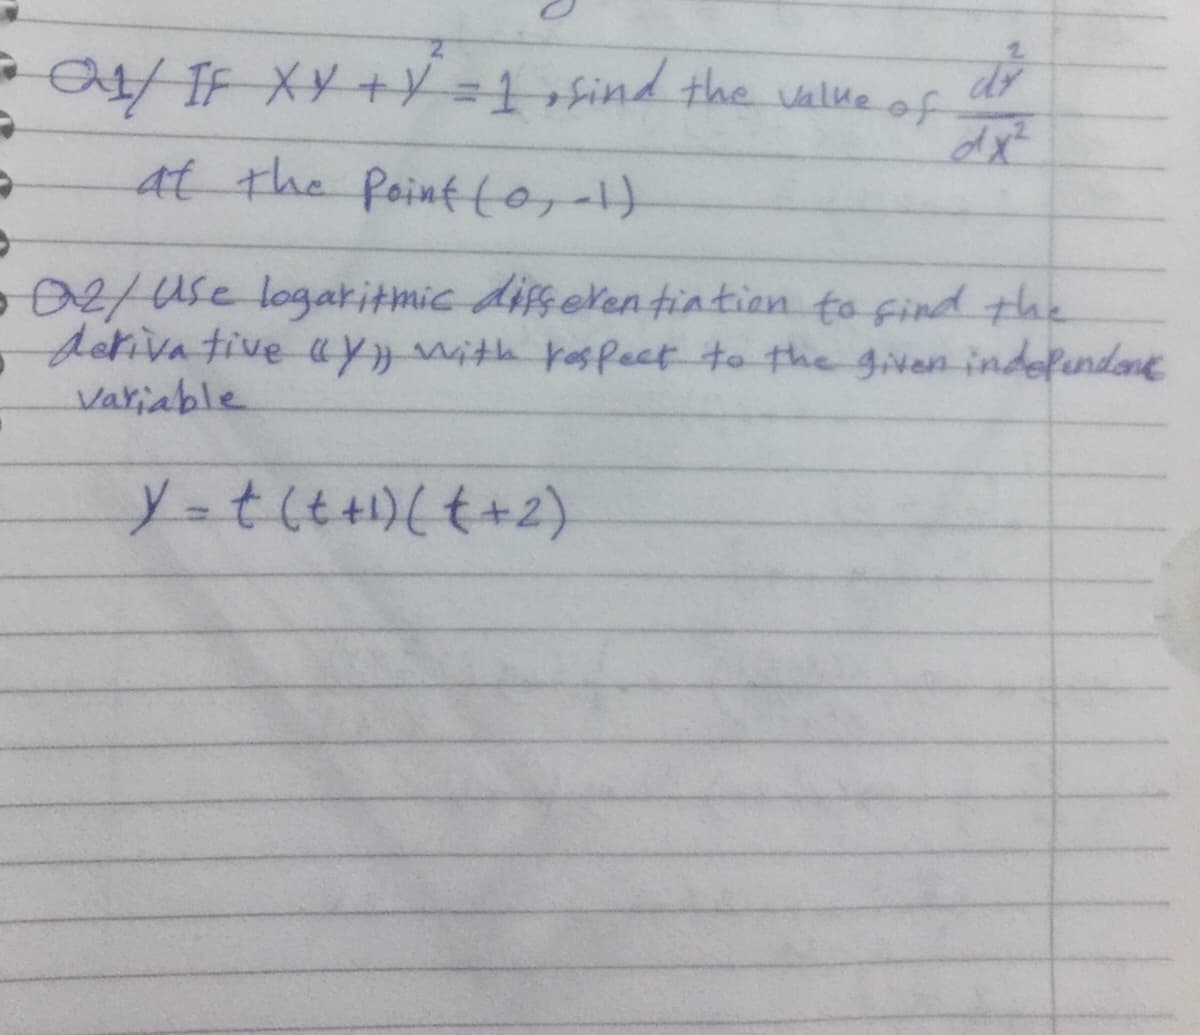 Q1/ IF XY + Y² = 1, find the value of d²y/dx²
at the Point (0, -1)
Q2/ Use logaritmic differentiation to find the
derivative «y» with respect to the given independent
variable
y = t (t+1)(t+2)